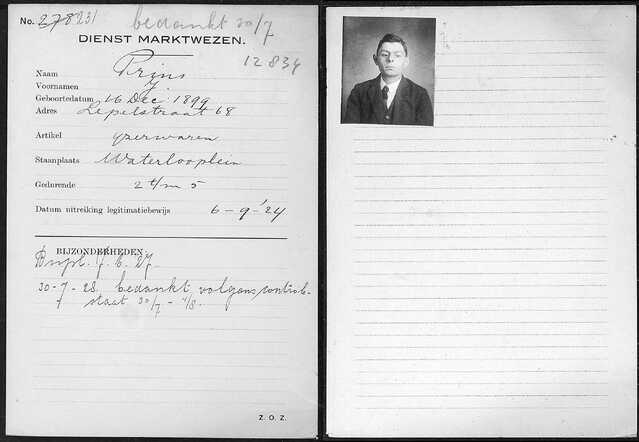 No. 278231 bedankt 30/7
DIENST MARKTWEZEN.
12834
Naam Prins
Voornamen J
Geboortedatum 16 Dec 1899
Adres Lepelstraat 68
Artikel yzerwaren
Staanplaats Waterlooplein
Gedurende 2 t/m 5
Datum uitreiking legitimatiebewijs 6-9-'24
BIJZONDERHEDEN:
Dupl. 7.6.27.
30-7-28. bedankt volgens controle-
staat 30/7 - 4/8.
Z. O. Z.